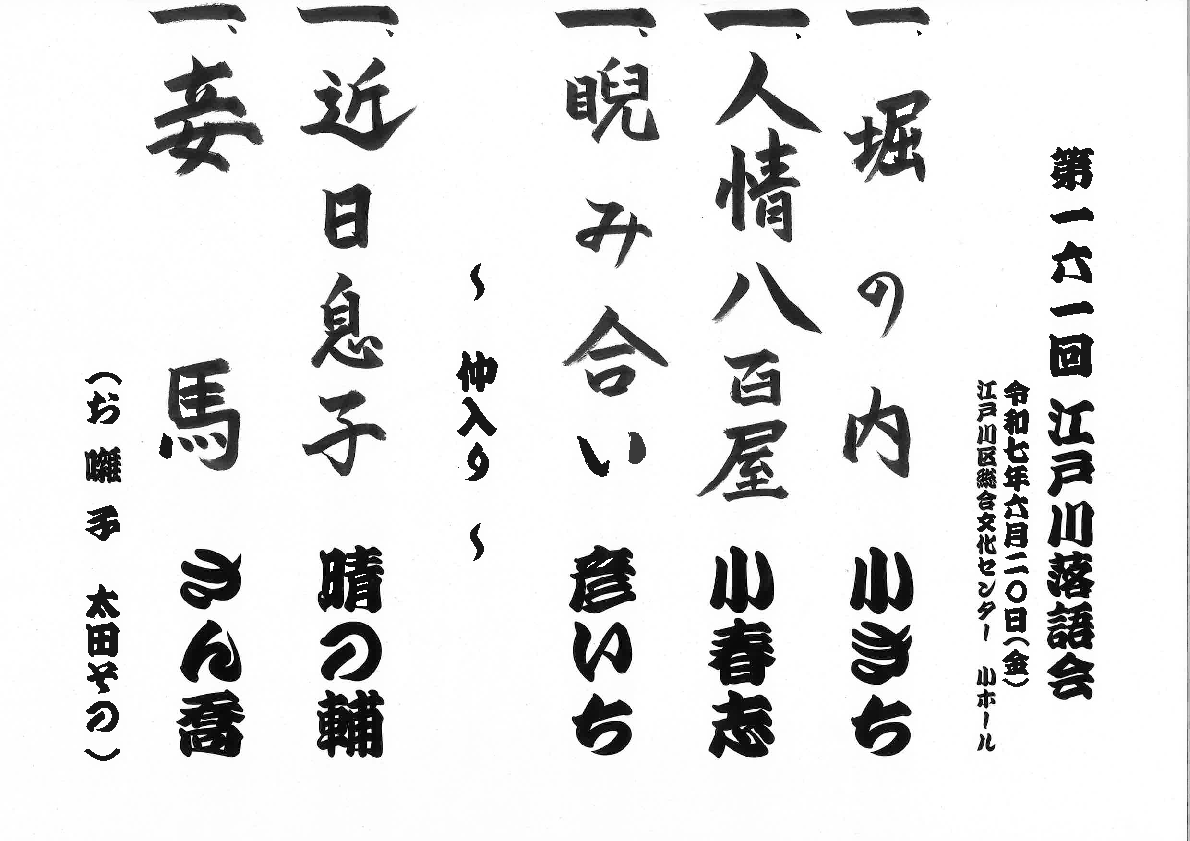 第一六一回 江戸川落語会
令和七年六月二〇日(金)
江戸川区総合文化センター 小ホール
一、堀の内 小きち
一、人情八百屋 小春志
一、睨み合い 彦いち
～ 仲入り ～
一、近日息子 晴の輔
一、妾馬 さん喬
(お囃子 太田その)